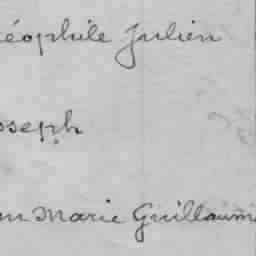 éophile Julien
oseph
an Marie Guillaum